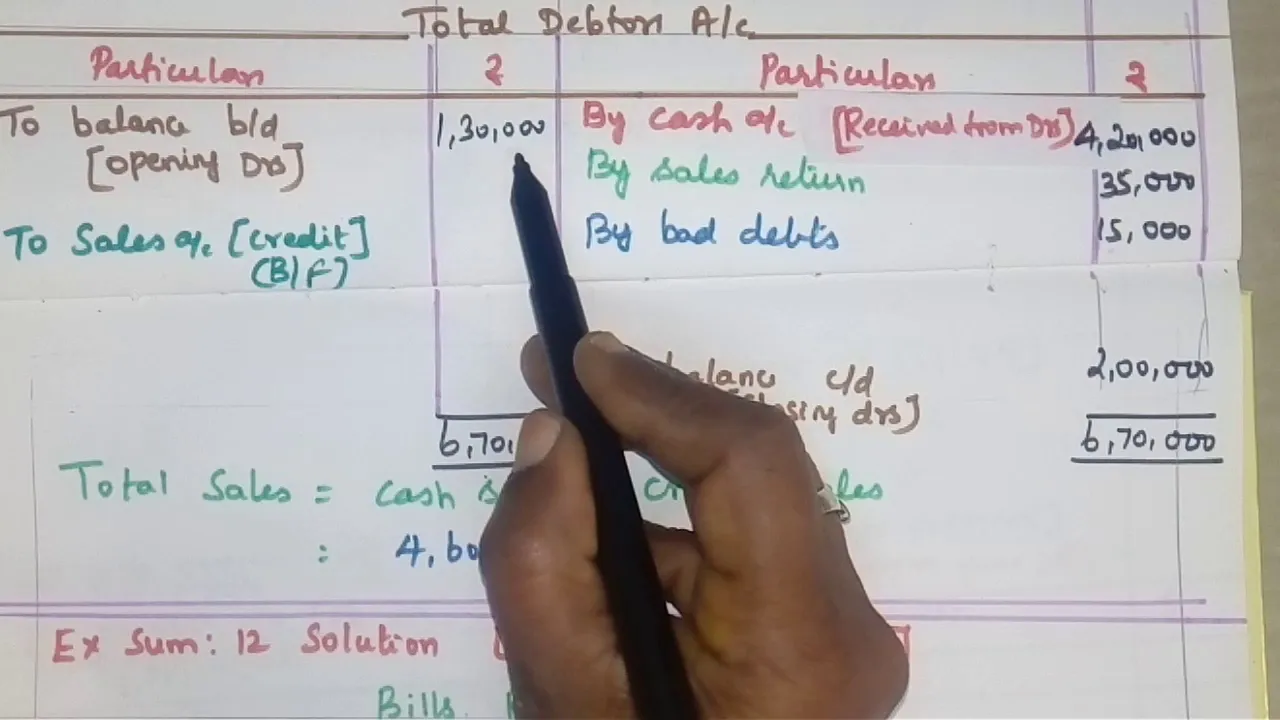 Total Debtors A/c
Particulars ₹ Particulars ₹
To balance b/d 1,30,000 By cash a/c [Received from Drs] 4,20,000
[opening Drs] By sales return 35,000
To Sales a/c [credit] By bad debts 15,000
(B/F)
balance c/d 2,00,000
drs]
6,70, 6,70,000
Total Sales = cash
: 4,60
Ex Sum: 12 Solution
Bills